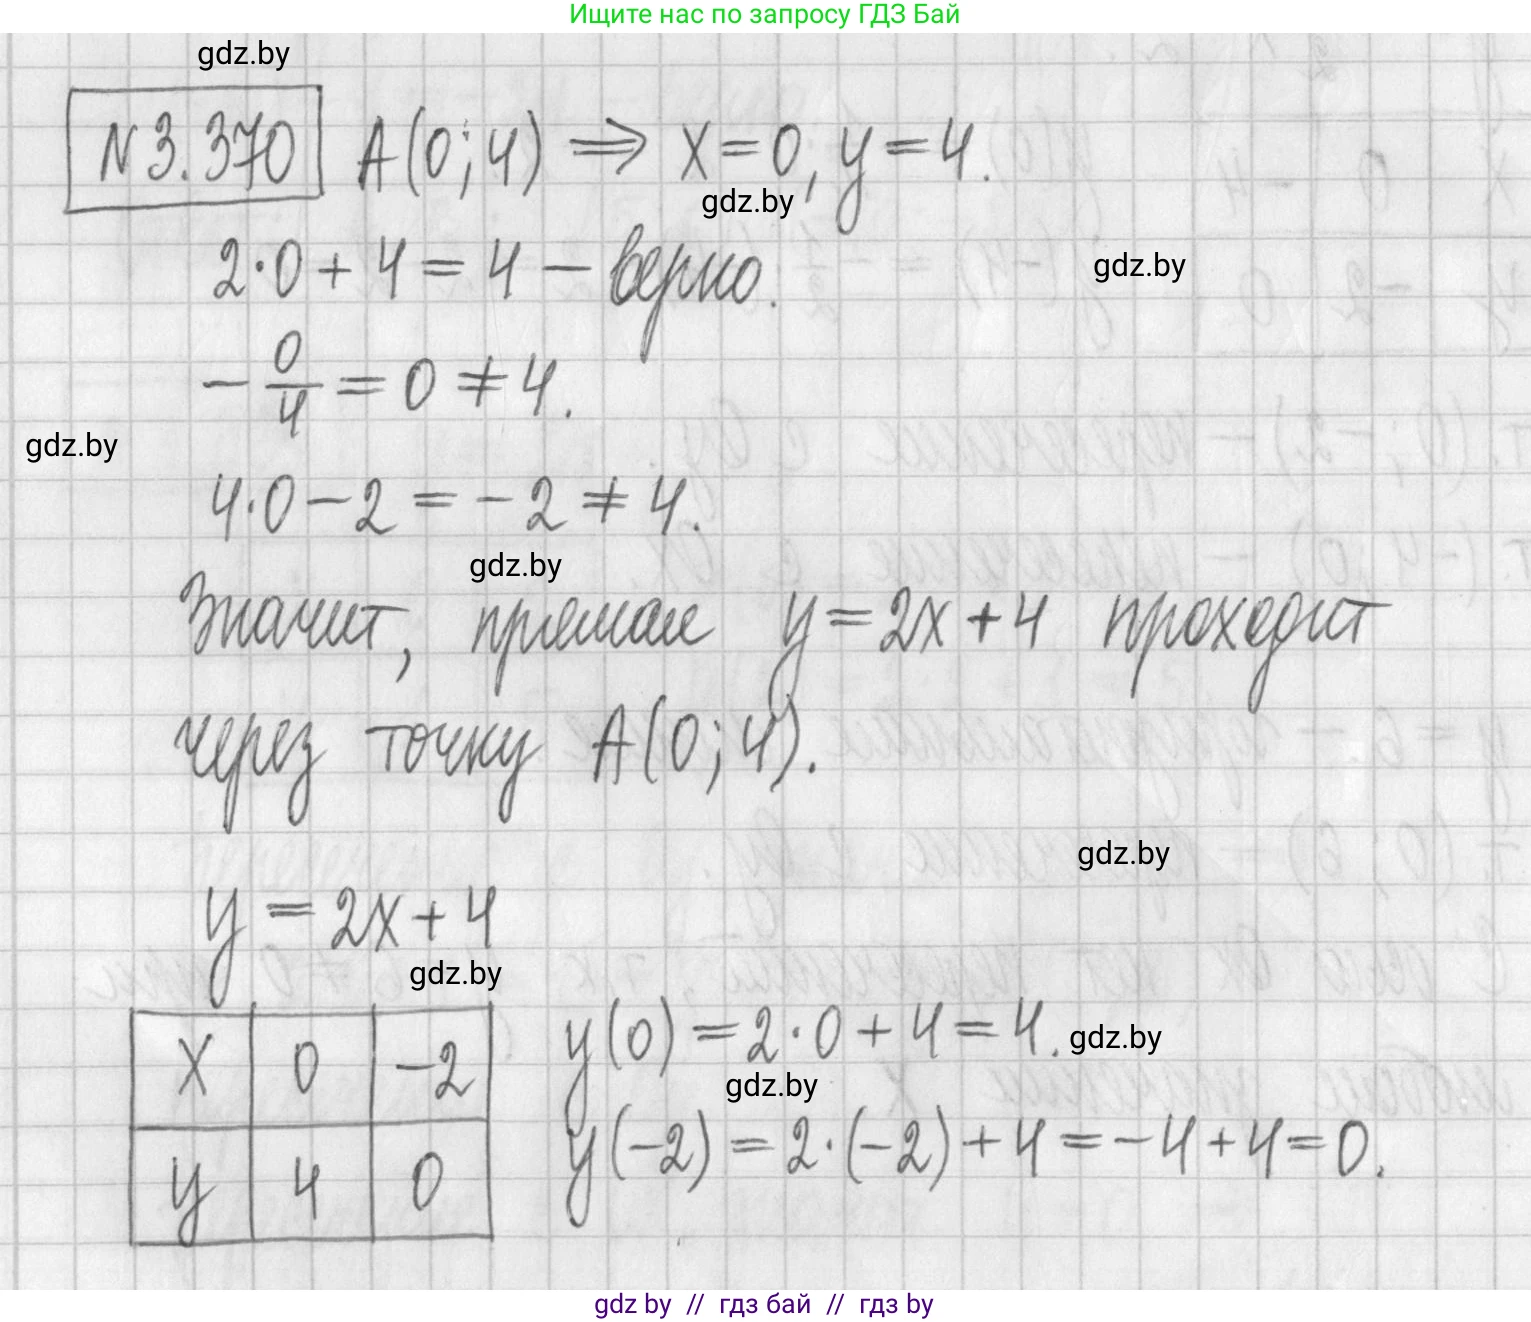 Ищите нас по запросу ГДЗ Бай
gdz.by
N3.370 A(0;4) ⇒ x=0, y=4.
gdz.by
2·0+4=4 – верно.
gdz.by
-0/4=0≠4.
gdz.by
4·0-2=-2≠4.
gdz.by
Значит, прямая y=2x+4 проходит
через точку A(0;4).
gdz.by
y=2x+4
gdz.by
x 0 -2
y 4 0
y(0)=2·0+4=4.
gdz.by
gdz.by
y(-2)=2·(-2)+4=-4+4=0.
gdz by // гдз бай // гдз by